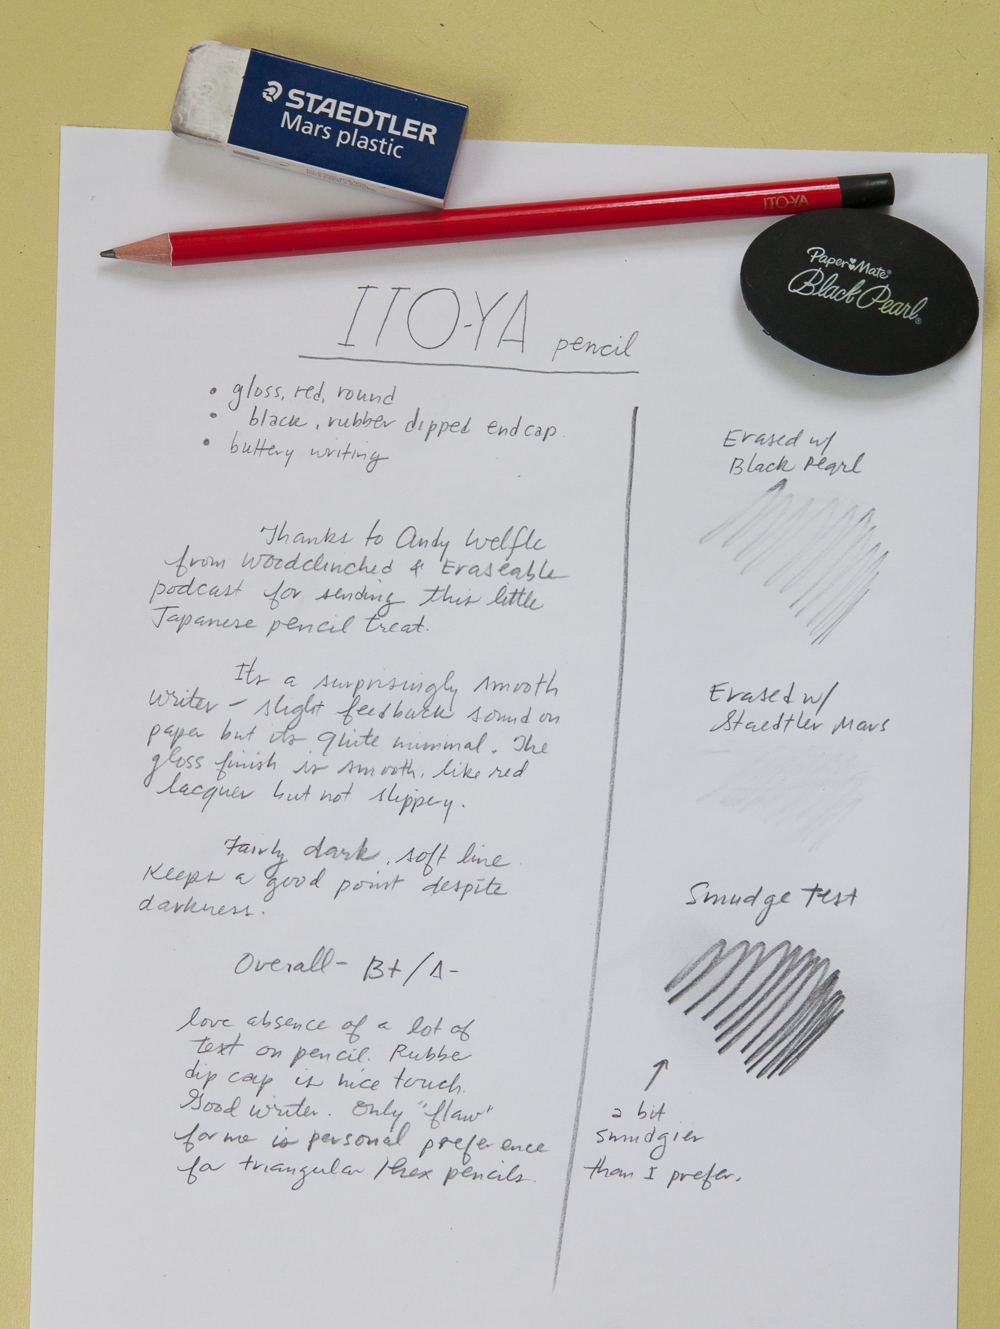 STAEDTLER
Mars plastic
ITO-YA
Paper Mate®
Black Pearl®
ITO-YA pencil
• gloss, red, round
• black, rubber dipped end cap.
• buttery writing
Thanks to Andy Welfle
from Woodclinched & Eraseable
podcast for sending this little
Japanese pencil treat.
Its a surprisingly smooth
writer – slight feedback sound on
paper but its quite minimal. The
gloss finish is smooth, like red
lacquer but not slippery.
Fairly dark, soft line.
Keeps a good point despite
darkness.
Overall – B+/A-
love absence of a lot of
text on pencil. Rubbe
dip cap is nice touch.
Good writer. Only "flaw"
for me is personal preference
for triangular/hex pencils.
Erased w/
Black Pearl
Erased w/
Staedtler Mars
Smudge Test
↑
a bit
smudgier
than I prefer.